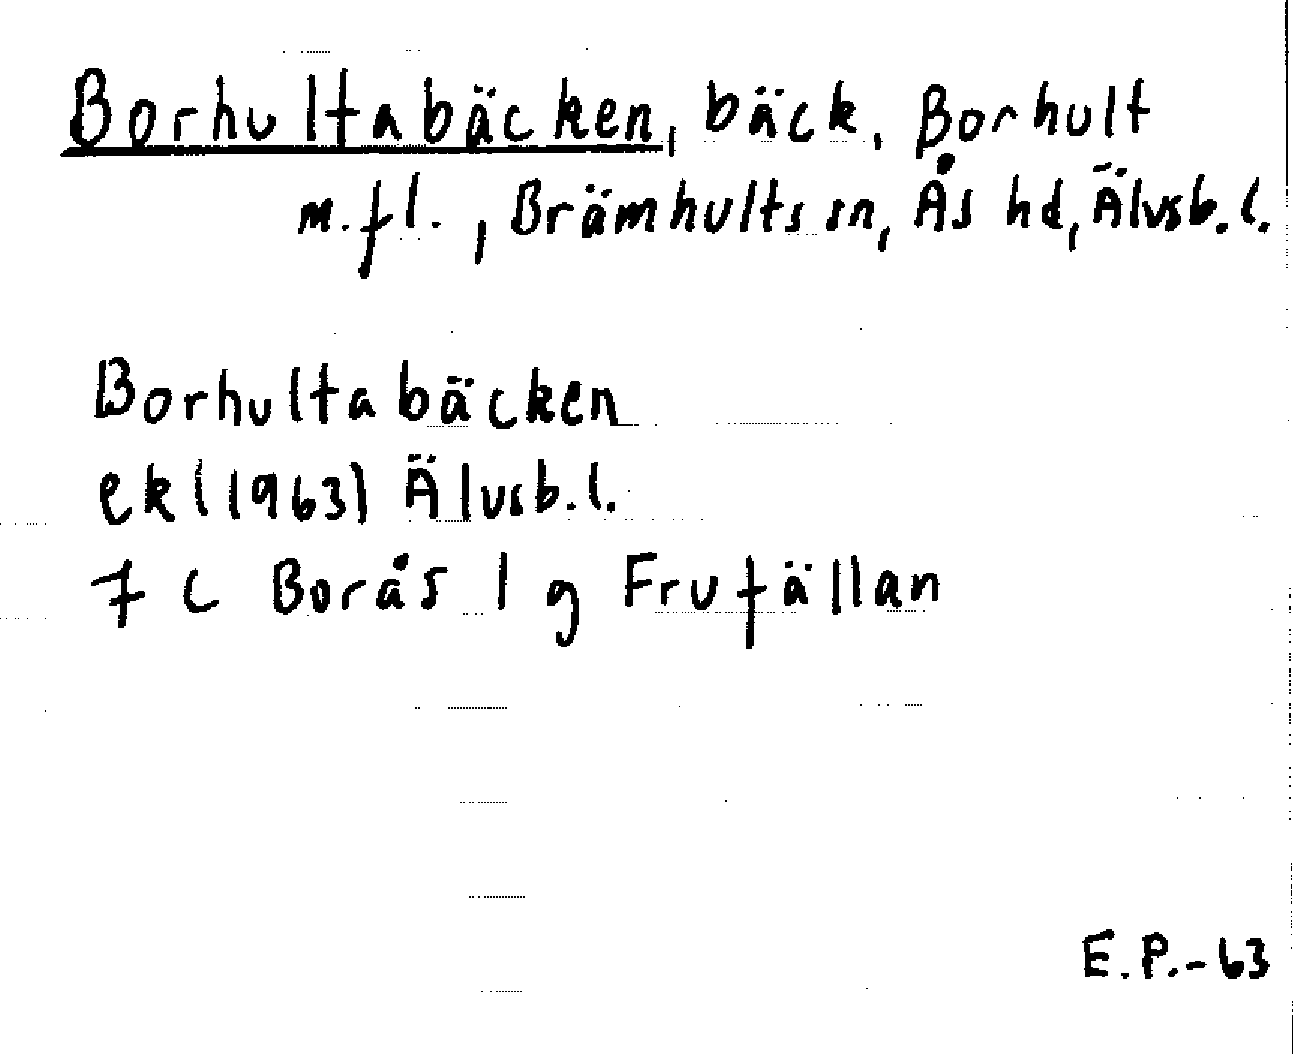 Borhultabäcken, bäck, Borhult
m.fl., Brämhults sn, Ås hd, Älvsb.l.
Borhultabäcken
ek (1963) Älvsb.l.
7 C Borås 1 g Frufällan
E.P.-63